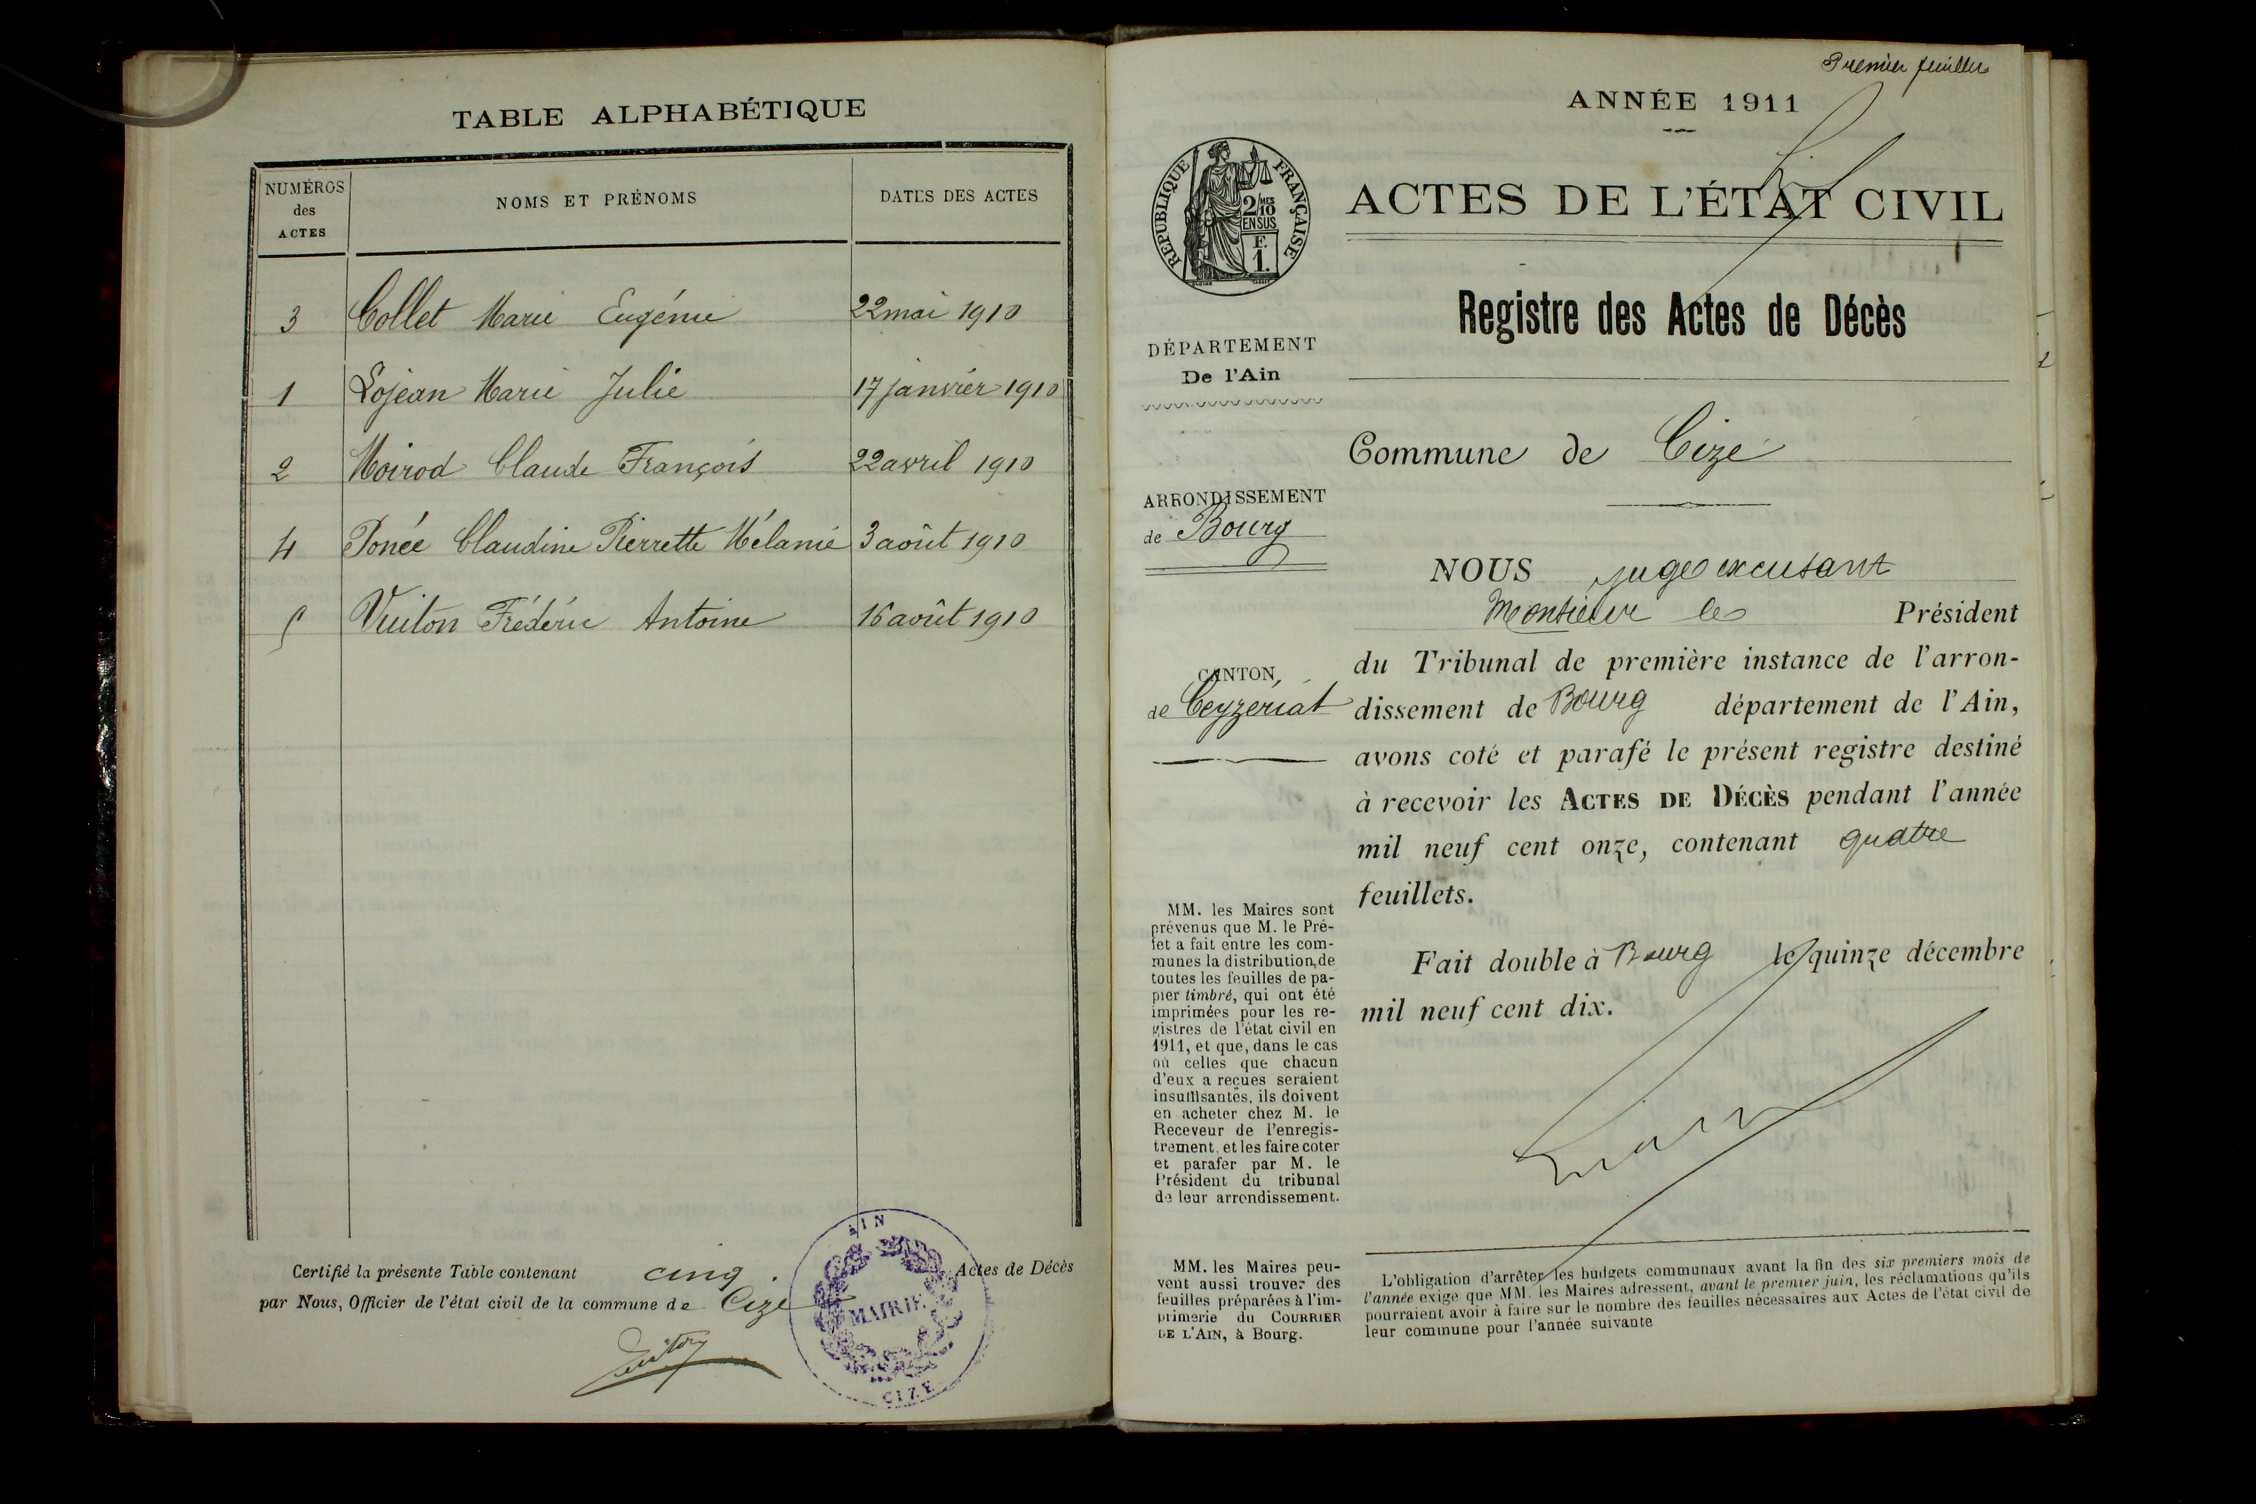 TABLE ALPHABÉTIQUE
NUMÉROS
des
ACTES
NOMS ET PRÉNOMS
DATES DES ACTES
3 Collet Marie Eugénie 22 mai 1910
1 Lojean Marie Julie 17 janvier 1910
2 Moirod Claude François 22 avril 1910
4 Ponée Claudine Pierrette Mélanie 3 août 1910
5 Vuiton Frédéric Antoine 16 août 1910
Certifié la présente Table contenant cinq. Actes de Décès
par Nous, Officier de l'état civil de la commune de Cize
Vuiton
AIN
MAIRIE
CIZE
Premier feuillet
ANNÉE 1911
ACTES DE L'ÉTAT CIVIL
RÉPUBLIQUE FRANÇAISE
2/10 MES
EN SUS
F.
1.
Registre des Actes de Décès
DÉPARTEMENT
De l'Ain
Commune de Cize
ARRONDISSEMENT
de Bourg
CANTON
de Ceyzériat
NOUS juge excusant
Monsieur le Président
du Tribunal de première instance de l'arron-
dissement de Bourg département de l'Ain,
avons coté et parafé le présent registre destiné
à recevoir les ACTES DE DÉCÈS pendant l'année
mil neuf cent onze, contenant quatre
feuillets.
Fait double à Bourg le quinze décembre
mil neuf cent dix.
MM. les Maires sont
prévenus que M. le Pré-
fet a fait entre les com-
munes la distribution, de
toutes les feuilles de pa-
pier timbré, qui ont été
imprimées pour les re-
gistres de l'état civil en
1911, et que, dans le cas
où celles que chacun
d'eux a reçues seraient
insuffisantes, ils doivent
en acheter chez M. le
Receveur de l'enregis-
trement, et les faire coter
et parafer par M. le
Président du tribunal
de leur arrondissement.
MM. les Maires peu-
vent aussi trouver des
feuilles préparées à l'im-
primerie du COURRIER
DE L'AIN, à Bourg.
L'obligation d'arrêter les budgets communaux avant la fin des six premiers mois de
l'année exige que MM. les Maires adressent, avant le premier juin, les réclamations qu'ils
pourraient avoir à faire sur le nombre des feuilles nécessaires aux Actes de l'état civil de
leur commune pour l'année suivante